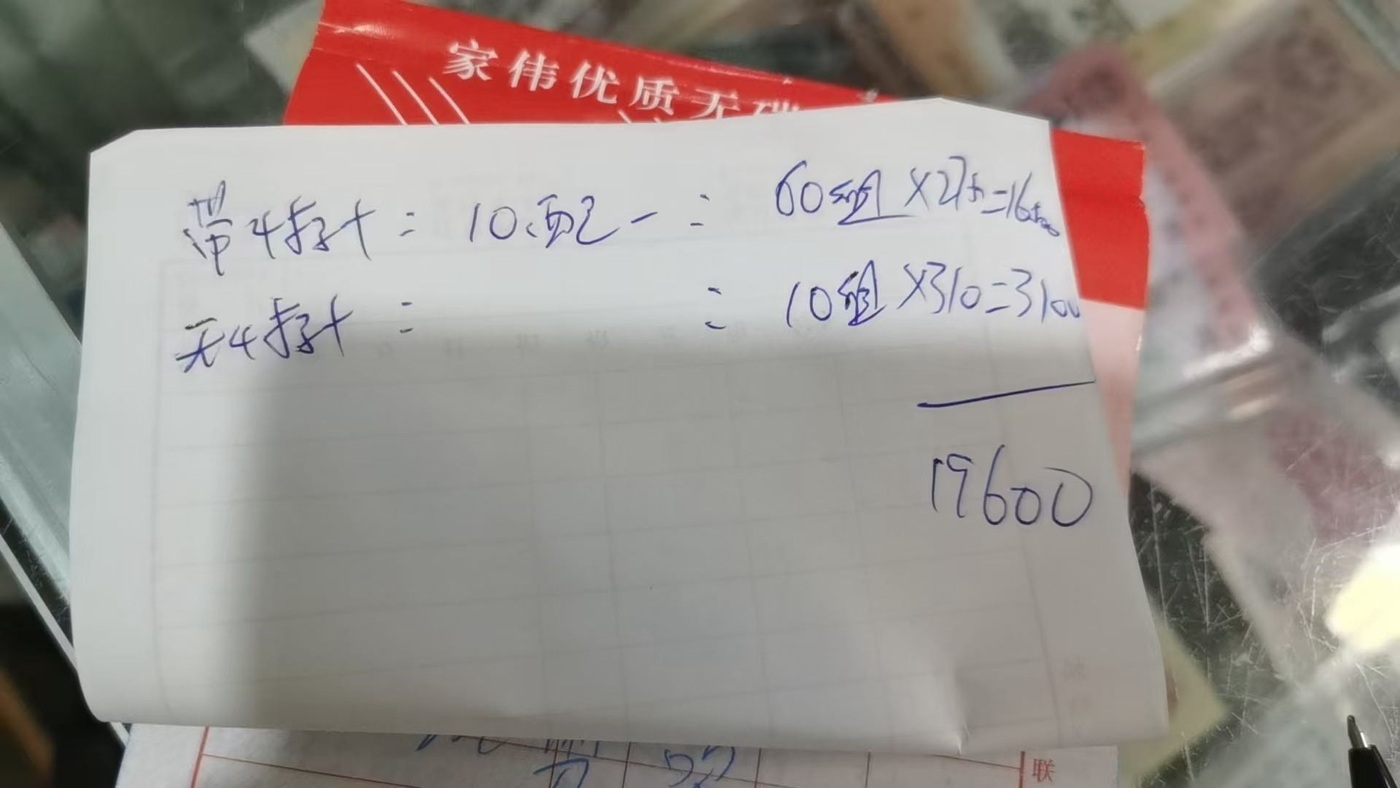 家伟优质无碳
带4捋十: 10配一: 60组×275=16500
无4捋十: : 10组×310=3100
19600
联